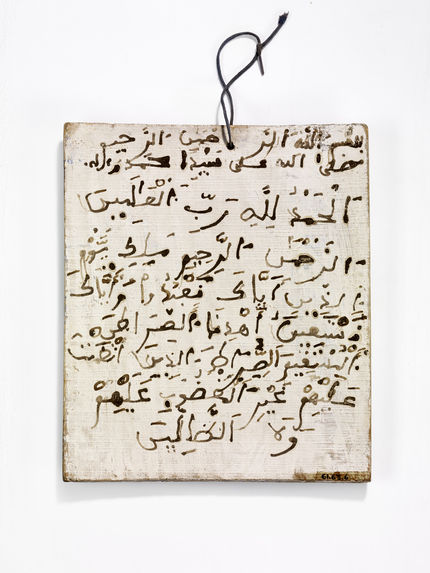 بسم الله الرحمن الرحيم
صلى الله على سيدنا محمد وآله
اَلْحَمْدُ لِلَّهِ رَبِّ الْعَٰلَمِينَ
اَلرَّحْمَٰنِ الرَّحِيمِ مَلِكِ يَوْمِ
الدِّينِ إِيَّاكَ نَعْبُدُ وَإِيَّاكَ
نَسْتَعِينُ اِهْدِنَا الصِّرَاطَ
الْمُسْتَقِيمَ صِرَاطَ الَّذِينَ أَنْعَمْتَ
عَلَيْهِمْ غَيْرِ الْمَغْضُوبِ عَلَيْهِمْ
وَلَا الضَّالِّينَ